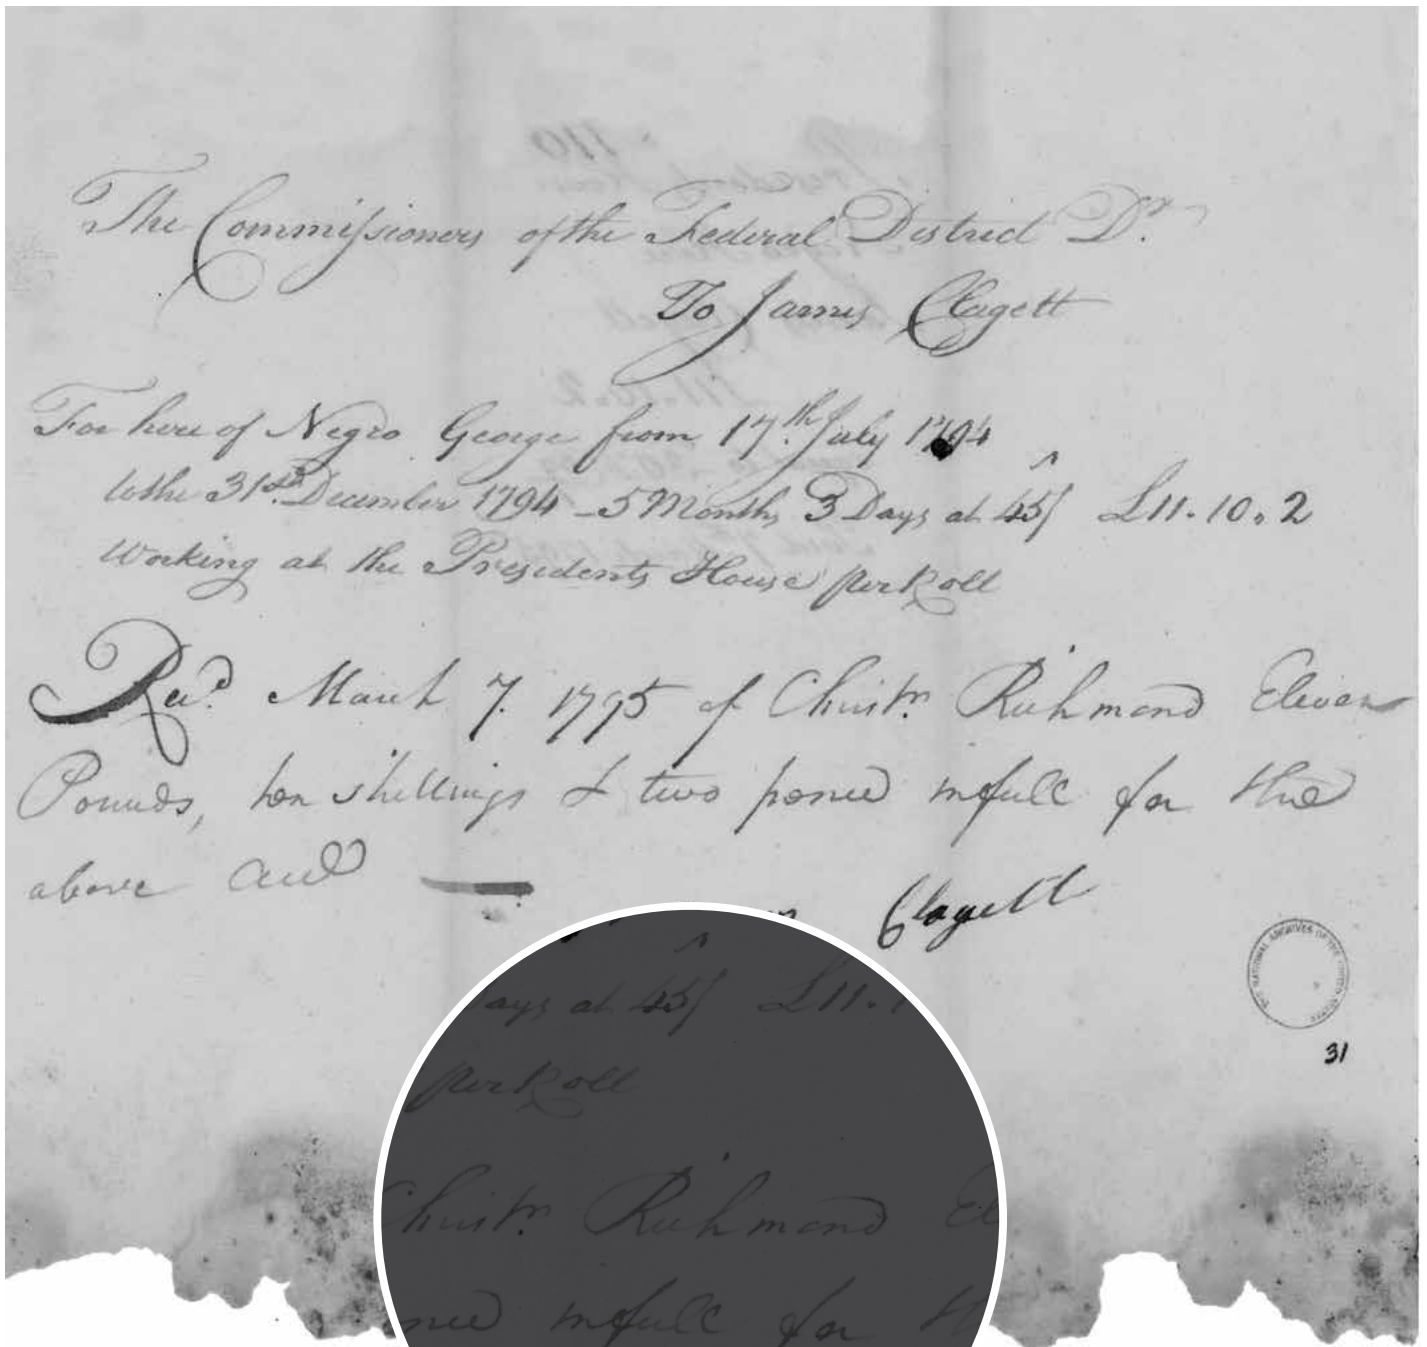 The Commissioners of the Federal District Dr.
To James Clagett
For hire of Negro George from 17th July 1794
to the 31st December 1794 - 5 Months 3 Days at 45/ £11.10.2
Working at the Presidents House per Roll
Recd. March 7. 1795 of Christr. Richmond Eleven
Pounds, ten shillings & two pence in full for the
above acct
Clagett
THE NATIONAL ARCHIVES OF THE UNITED STATES
31
ays at 45/ £11.1
per Roll
Christr. Richmond El
nce in full for th